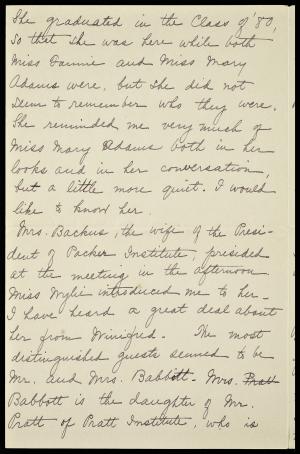 She graduated in the Class of '80,
so that she was here while both
Miss Fannie and Miss Mary
Adams were, but she did not
seem to remember who they were.
She reminded me very much of
Miss Mary Adams both in her
looks and in her conversation,
but a little more quiet. I would
like to know her.
Mrs. Backus, the wife of the Presi-
dent of Packer Institute, presided
at the meeting in the afternoon.
Miss Wylie introduced me to her.
I have heard a great deal about
her from Winifred. The most
distinguished guests seemed to be
Mr. and Mrs. Babbott. Mrs. Pratt
Babbott is the daughter of Mr.
Pratt of Pratt Institute, who is